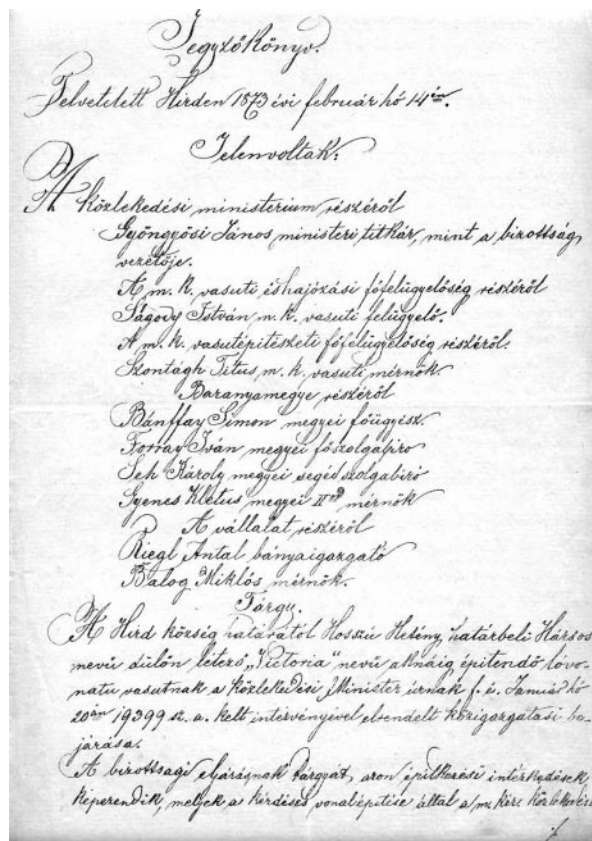 Jegyzőkönyv.
Felvétetett Hirden 1873 évi február hó 14én.
Jelenvoltak:
A közlekedési ministerium részéről
Gyöngyösi János ministeri titkár, mint a bizottság
vezetője.
A m. k. vasuti és hajózási főfelügyelőség részéről
Ságody István m. k. vasuti felügyelő.
A m. k. vasutépitészeti főfelügyelőség részéről.
Szontágh Titus, m. k. vasuti mérnök.
Baranyamegye részéről
Bánffay Simon megyei főügyész.
Forray Iván megyei főszolgabiro
Seh Károly megyei segédszolgabiró
Gyenes Kletus megyei IIod mérnök
A vállalat részéről
Riegl Antal bányaigazgató
Balog Miklós mérnök.
Tárgy.
A Hird község határától Hosszú Hetény, határbeli Hársos
nevü dülőn létező „Victoria" nevü aknáig épitendő lóvo-
natu vasutnak a közlekedési Minister úrnak f. é. Január hó
20án 19399 sz. a. kelt intézvényével elrendelt közigazgatási be-
járása.
A bizottsági eljárásnak tárgyát, azon épitkezési intézkedések
képezendik, melyek a kérdéses vonal épitése által a m. kir. közlekedési